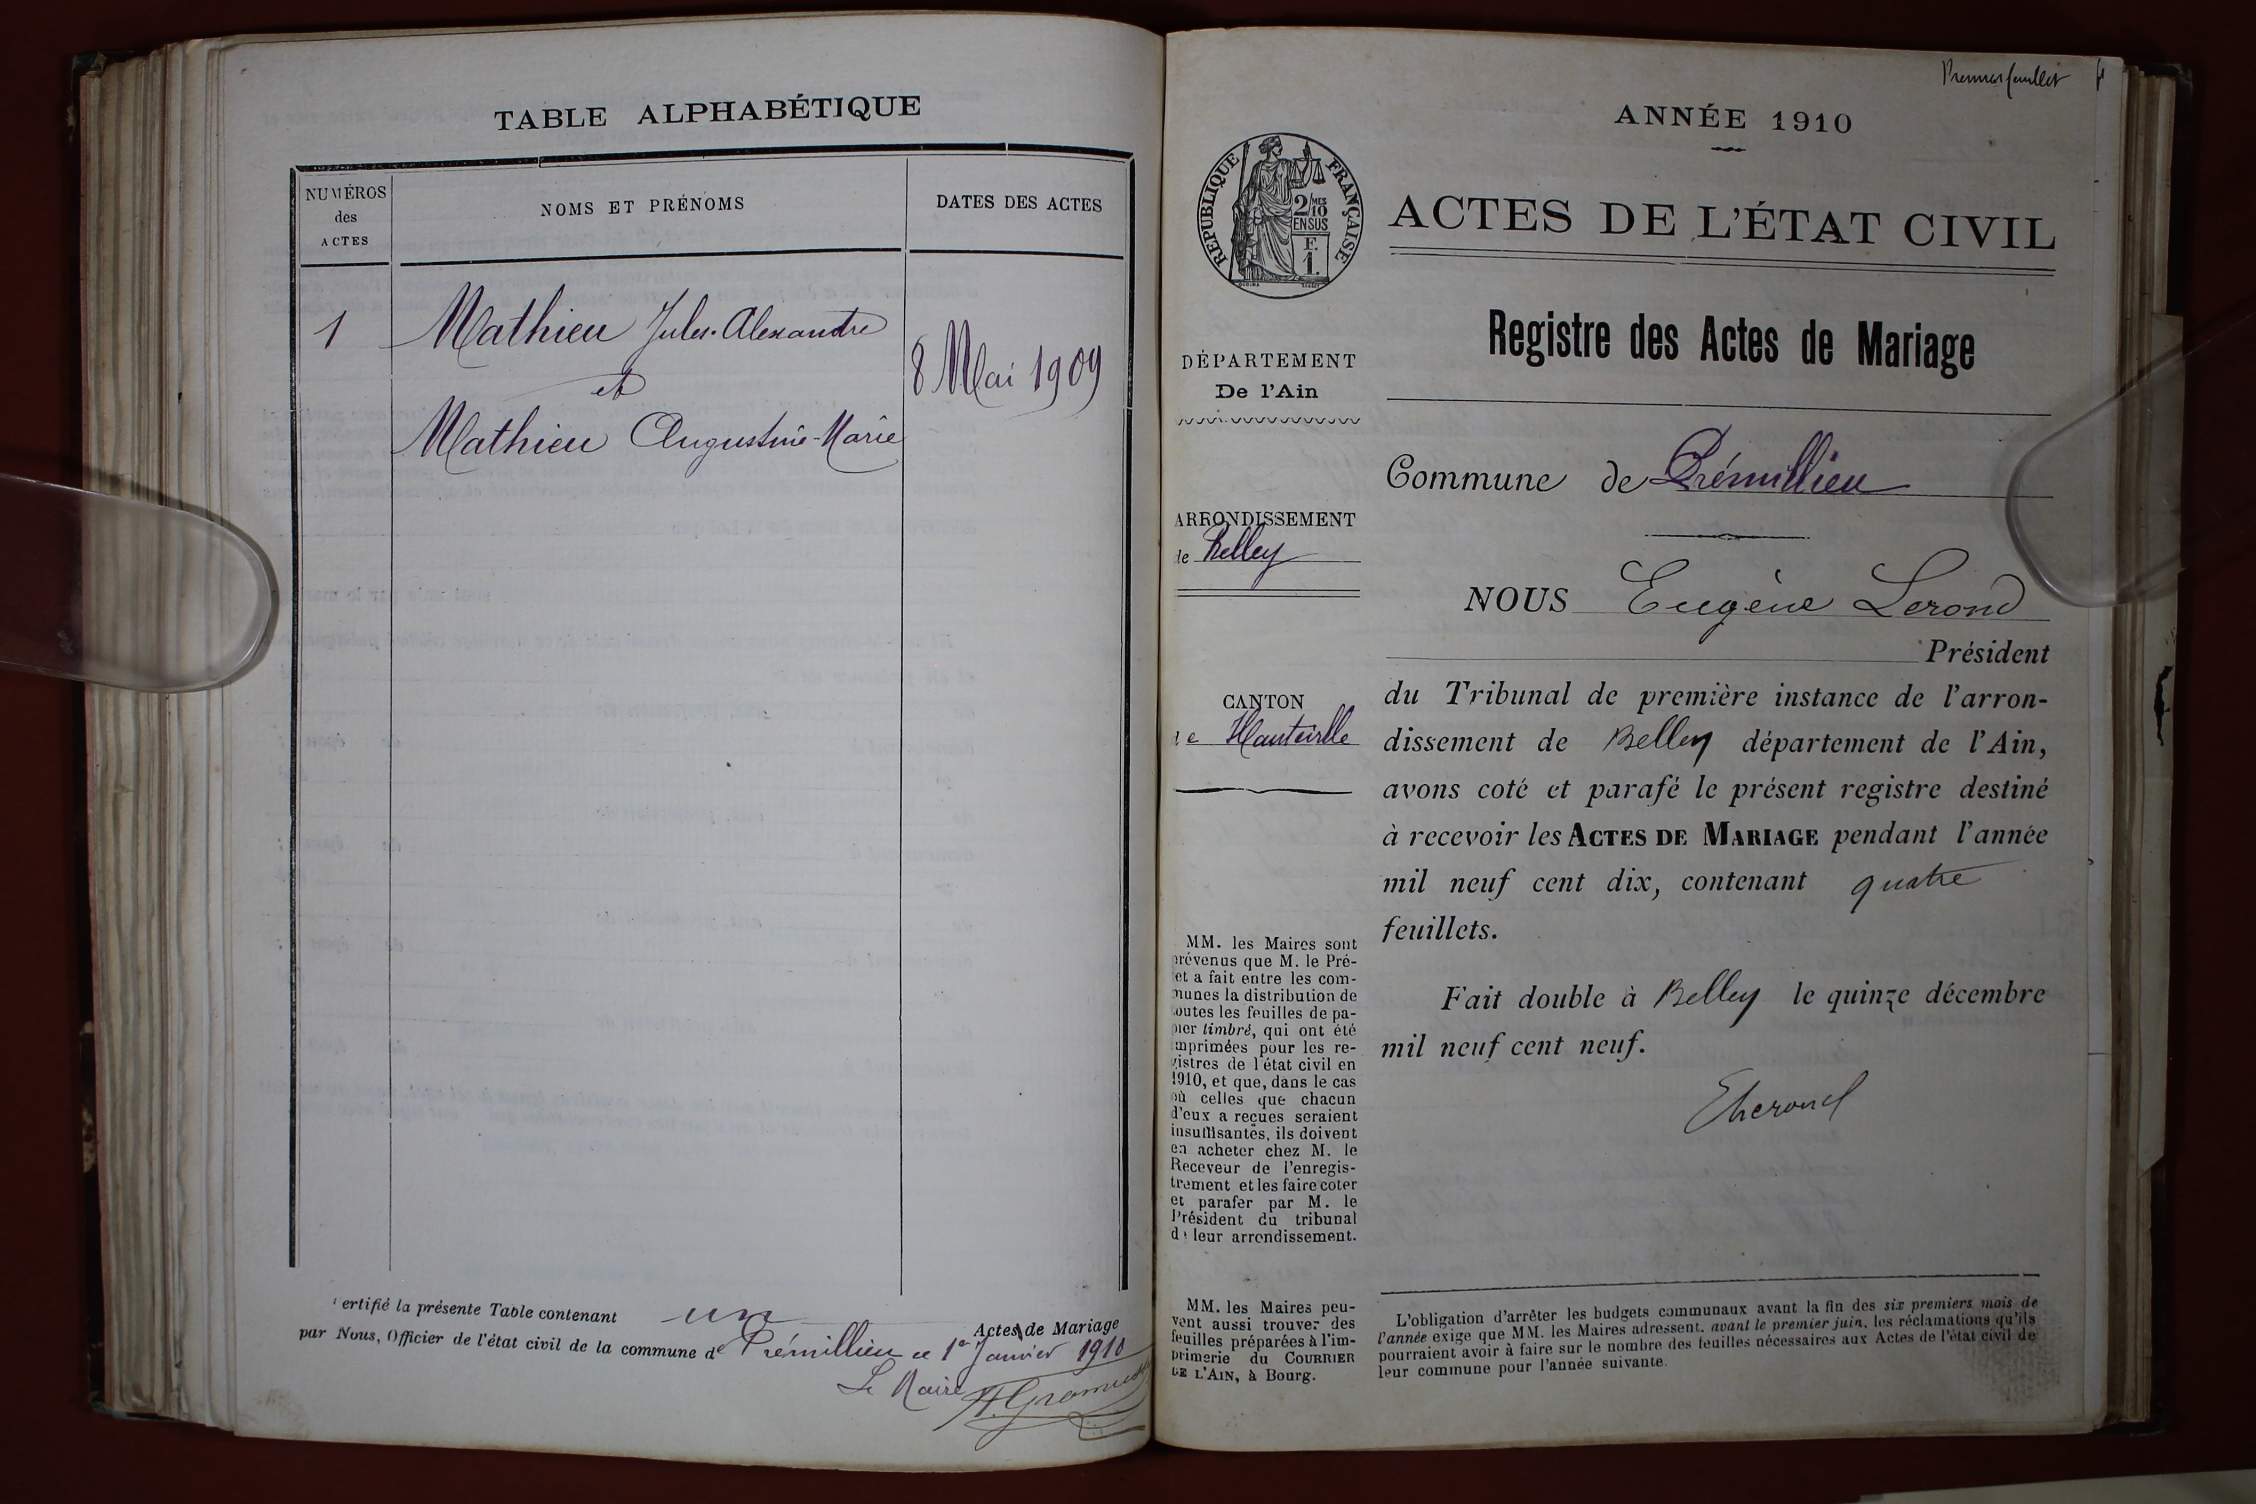 TABLE ALPHABÉTIQUE
NUMÉROS
des
ACTES
NOMS ET PRÉNOMS
DATES DES ACTES
1
Mathieu Jules-Alexandre
et
Mathieu Augustine-Marie
8 Mai 1909
ertifié la présente Table contenant un Actes de Mariage
par Nous, Officier de l'état civil de la commune de Prémillieu ce 1er Janvier 1910
Le Maire
Premier feuillet
ANNÉE 1910
RÉPUBLIQUE FRANÇAISE
2/10 MES
EN SUS
F.
1.
ACTES DE L'ÉTAT CIVIL
Registre des Actes de Mariage
DÉPARTEMENT
De l'Ain
ARRONDISSEMENT
de Belley
CANTON
de Hauteville
MM. les Maires sont
prévenus que M. le Pré-
et a fait entre les com-
munes la distribution de
toutes les feuilles de pa-
pier timbré, qui ont été
imprimées pour les re-
gistres de l'état civil en
1910, et que, dans le cas
où celles que chacun
d'eux a reçues seraient
insuffisantes, ils doivent
en acheter chez M. le
Receveur de l'enregis-
trement et les faire coter
et parafer par M. le
Président du tribunal
de leur arrondissement.
MM. les Maires peu-
vent aussi trouver des
feuilles préparées à l'im-
primerie du COURRIER
DE L'AIN, à Bourg.
Commune de Prémillieu
NOUS Eugène Lerond
Président
du Tribunal de première instance de l'arron-
dissement de Belley département de l'Ain,
avons coté et parafé le présent registre destiné
à recevoir les ACTES DE MARIAGE pendant l'année
mil neuf cent dix, contenant quatre
feuillets.
Fait double à Belley le quinze décembre
mil neuf cent neuf.
L'obligation d'arrêter les budgets communaux avant la fin des six premiers mois de
l'année exige que MM. les Maires adressent, avant le premier juin, les réclamations qu'ils
pourraient avoir à faire sur le nombre des feuilles nécessaires aux Actes de l'état civil de
leur commune pour l'année suivante.